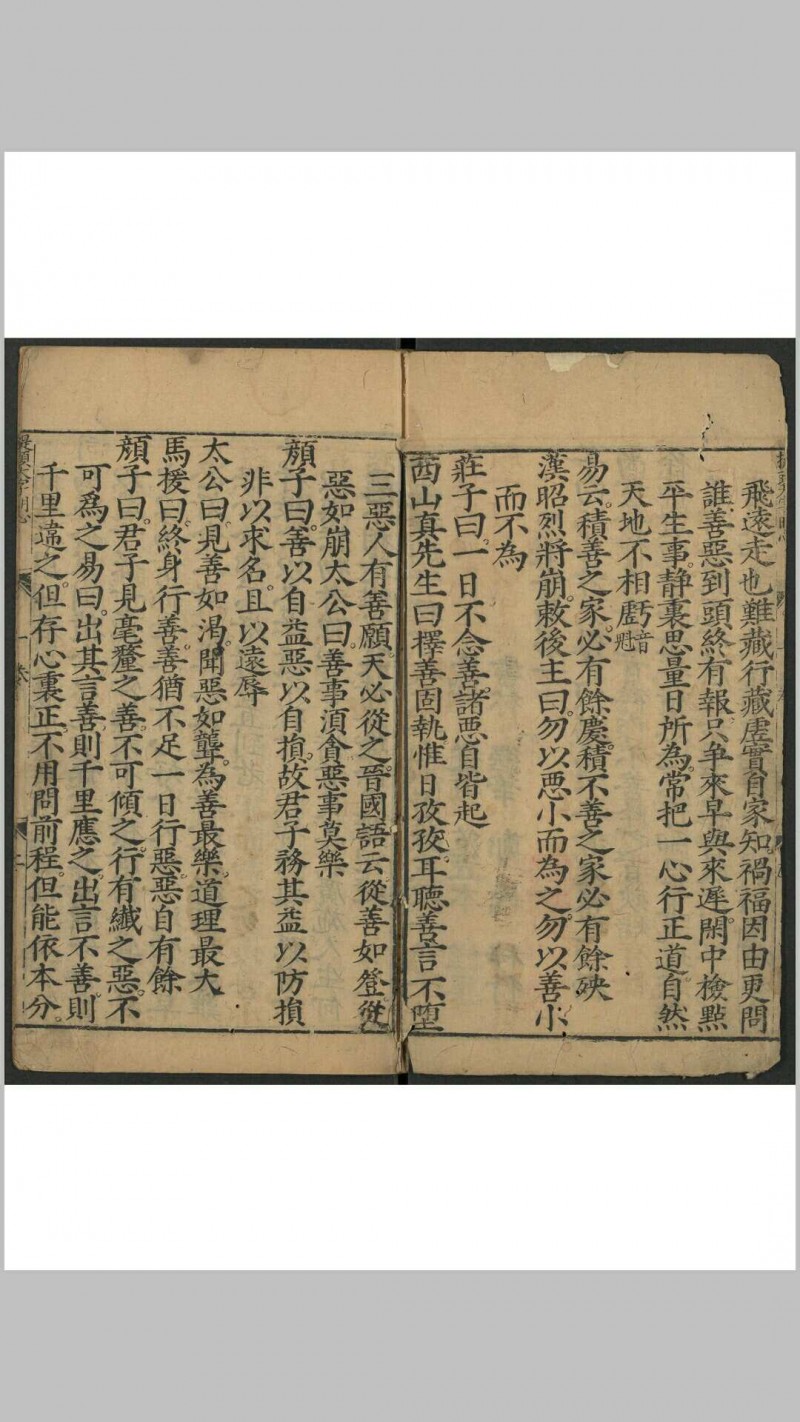 飛遠走也難藏行藏虛實自家知禍福因由更問
誰善惡到頭終有報只争來早與來遲閑中檢點
平生事静裏思量日所為常把一心行正道自然
天地不相虧音魁
易云積善之家必有餘慶積不善之家必有餘殃
漢昭烈將崩敕後主曰勿以惡小而為之勿以善小
而不為
莊子曰一日不念善諸惡自皆起
西山真先生曰擇善固執惟日孜孜耳聽善言不墮
三惡人有善願天必從之晉國語云從善如登從
惡如崩太公曰善事湏貪惡事莫樂
顔子曰善以自益惡以自損故君子務其益以防損
非以求名且以遠辱
太公曰見善如渴聞惡如聾為善最樂道理最大
馬援曰終身行善善猶不足一日行惡惡自有餘
顔子曰君子見毫釐之善不可傾之行有纎之惡不
可爲之易曰出其言善則千里應之出言不善則
千里違之但存心裏正不用問前程但能依本分